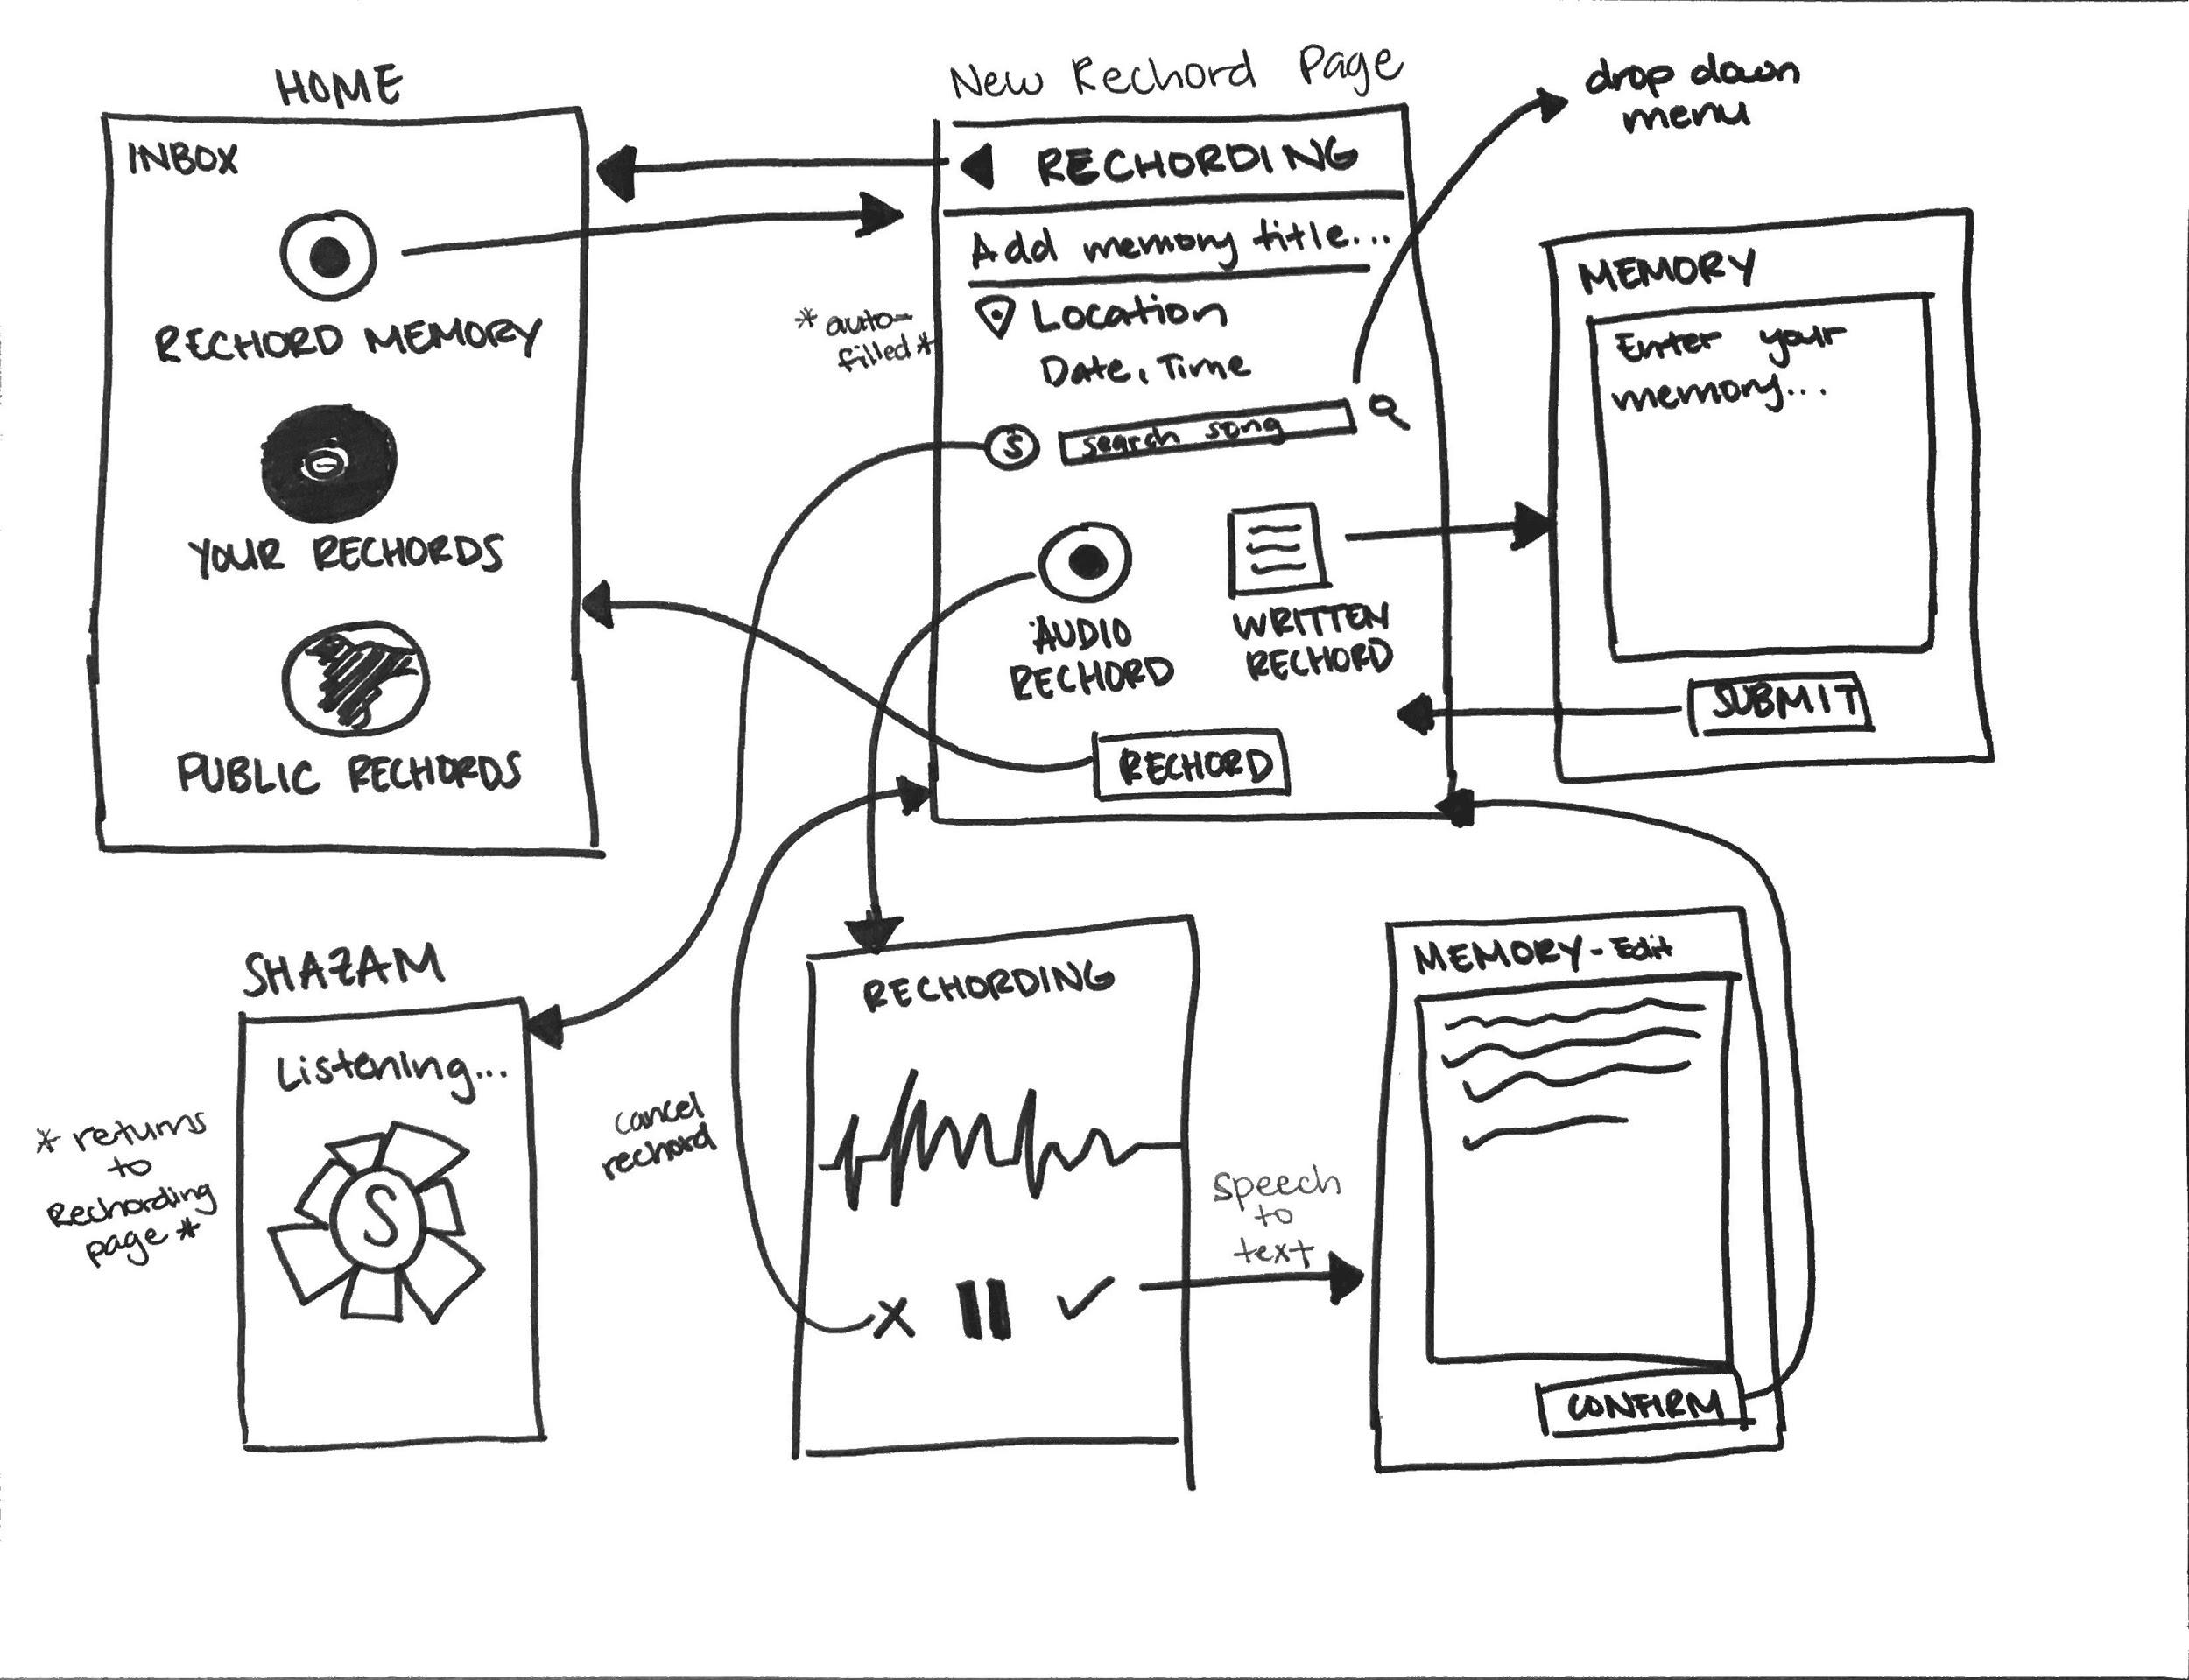 HOME
INBOX
RECHORD MEMORY
YOUR RECHORDS
PUBLIC RECHORDS
New Rechord Page
RECHORDING
Add memory title...
* auto-
filled *
Location
Date, Time
S
search song
AUDIO
RECHORD
WRITTEN
RECHORD
RECHORD
drop down
menu
MEMORY
Enter your
memory...
SUBMIT
SHAZAM
Listening...
S
* returns
to
Rechording
page *
cancel
rechord
RECHORDING
X
speech
to
text
MEMORY - Edit
CONFIRM